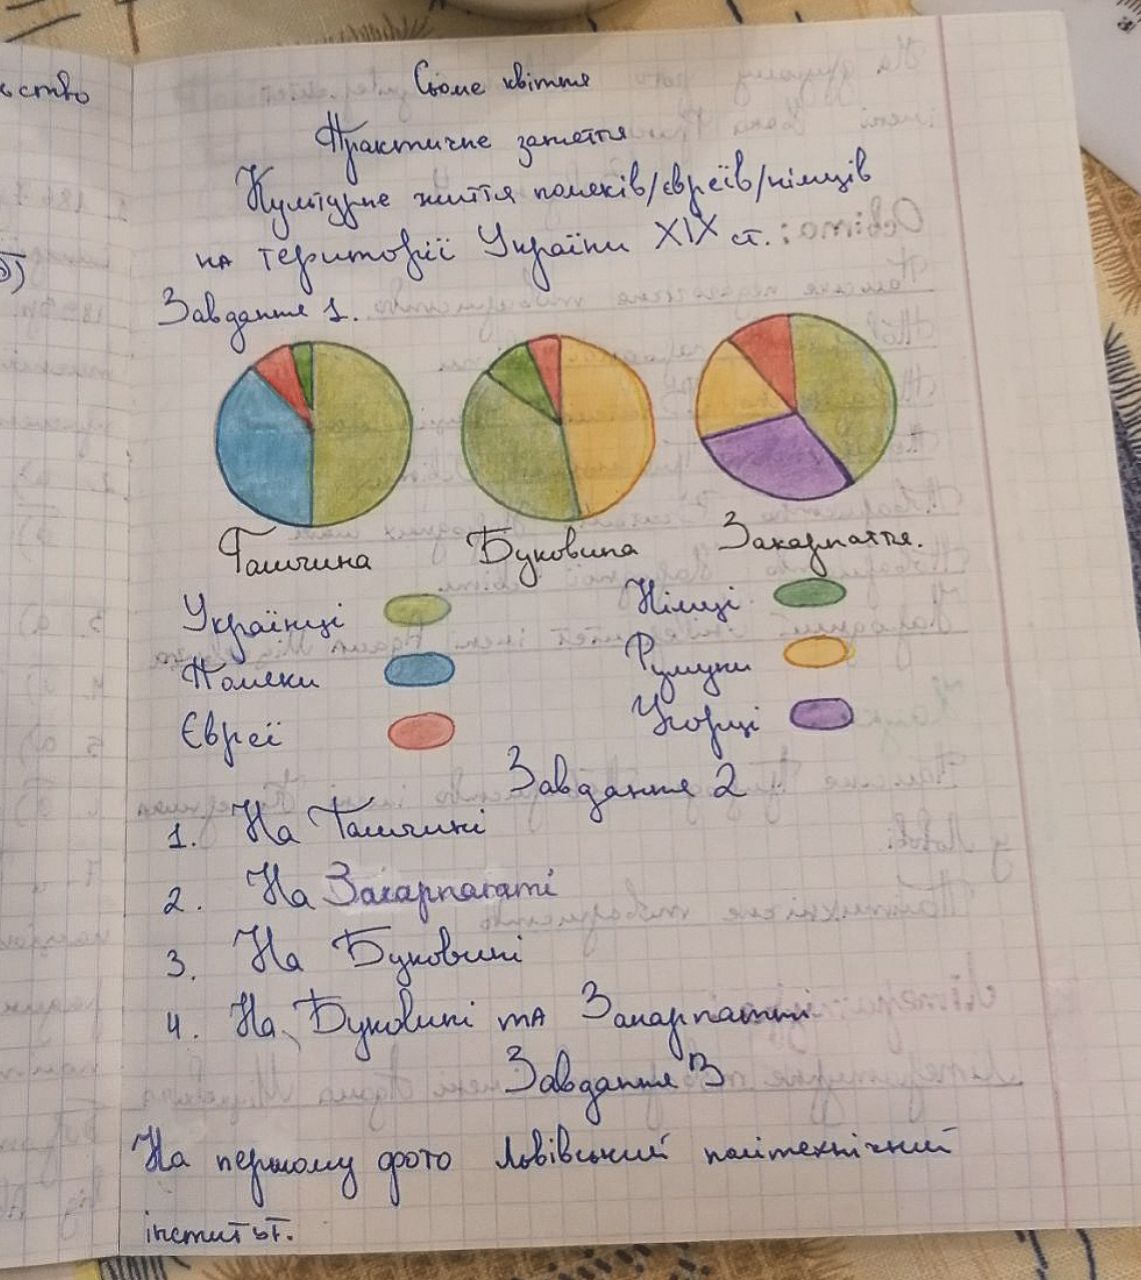 ьство
Сьоме квітня
Практичне заняття
Культурне життя поляків/євреїв/німців
на території України XIX ст.
Завдання 1.
Галичина
Буковина
Закарпаття.
Українці
Німці
Поляки
Румуни
Євреї
Угорці
Завдання 2
1. На Галичині
2. На Закарпататі
3. На Буковині
4. На Буковині та Закарпатті
Завдання 3
На першому фото Львівський політехнічний
інститът.